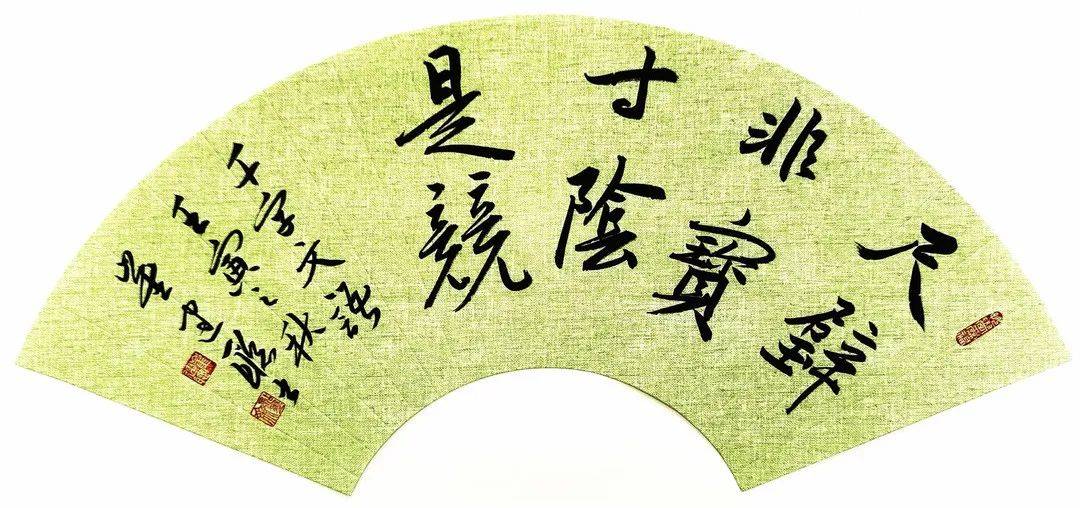 尺璧
非寶
寸陰
是競
千字文語
壬寅之秋